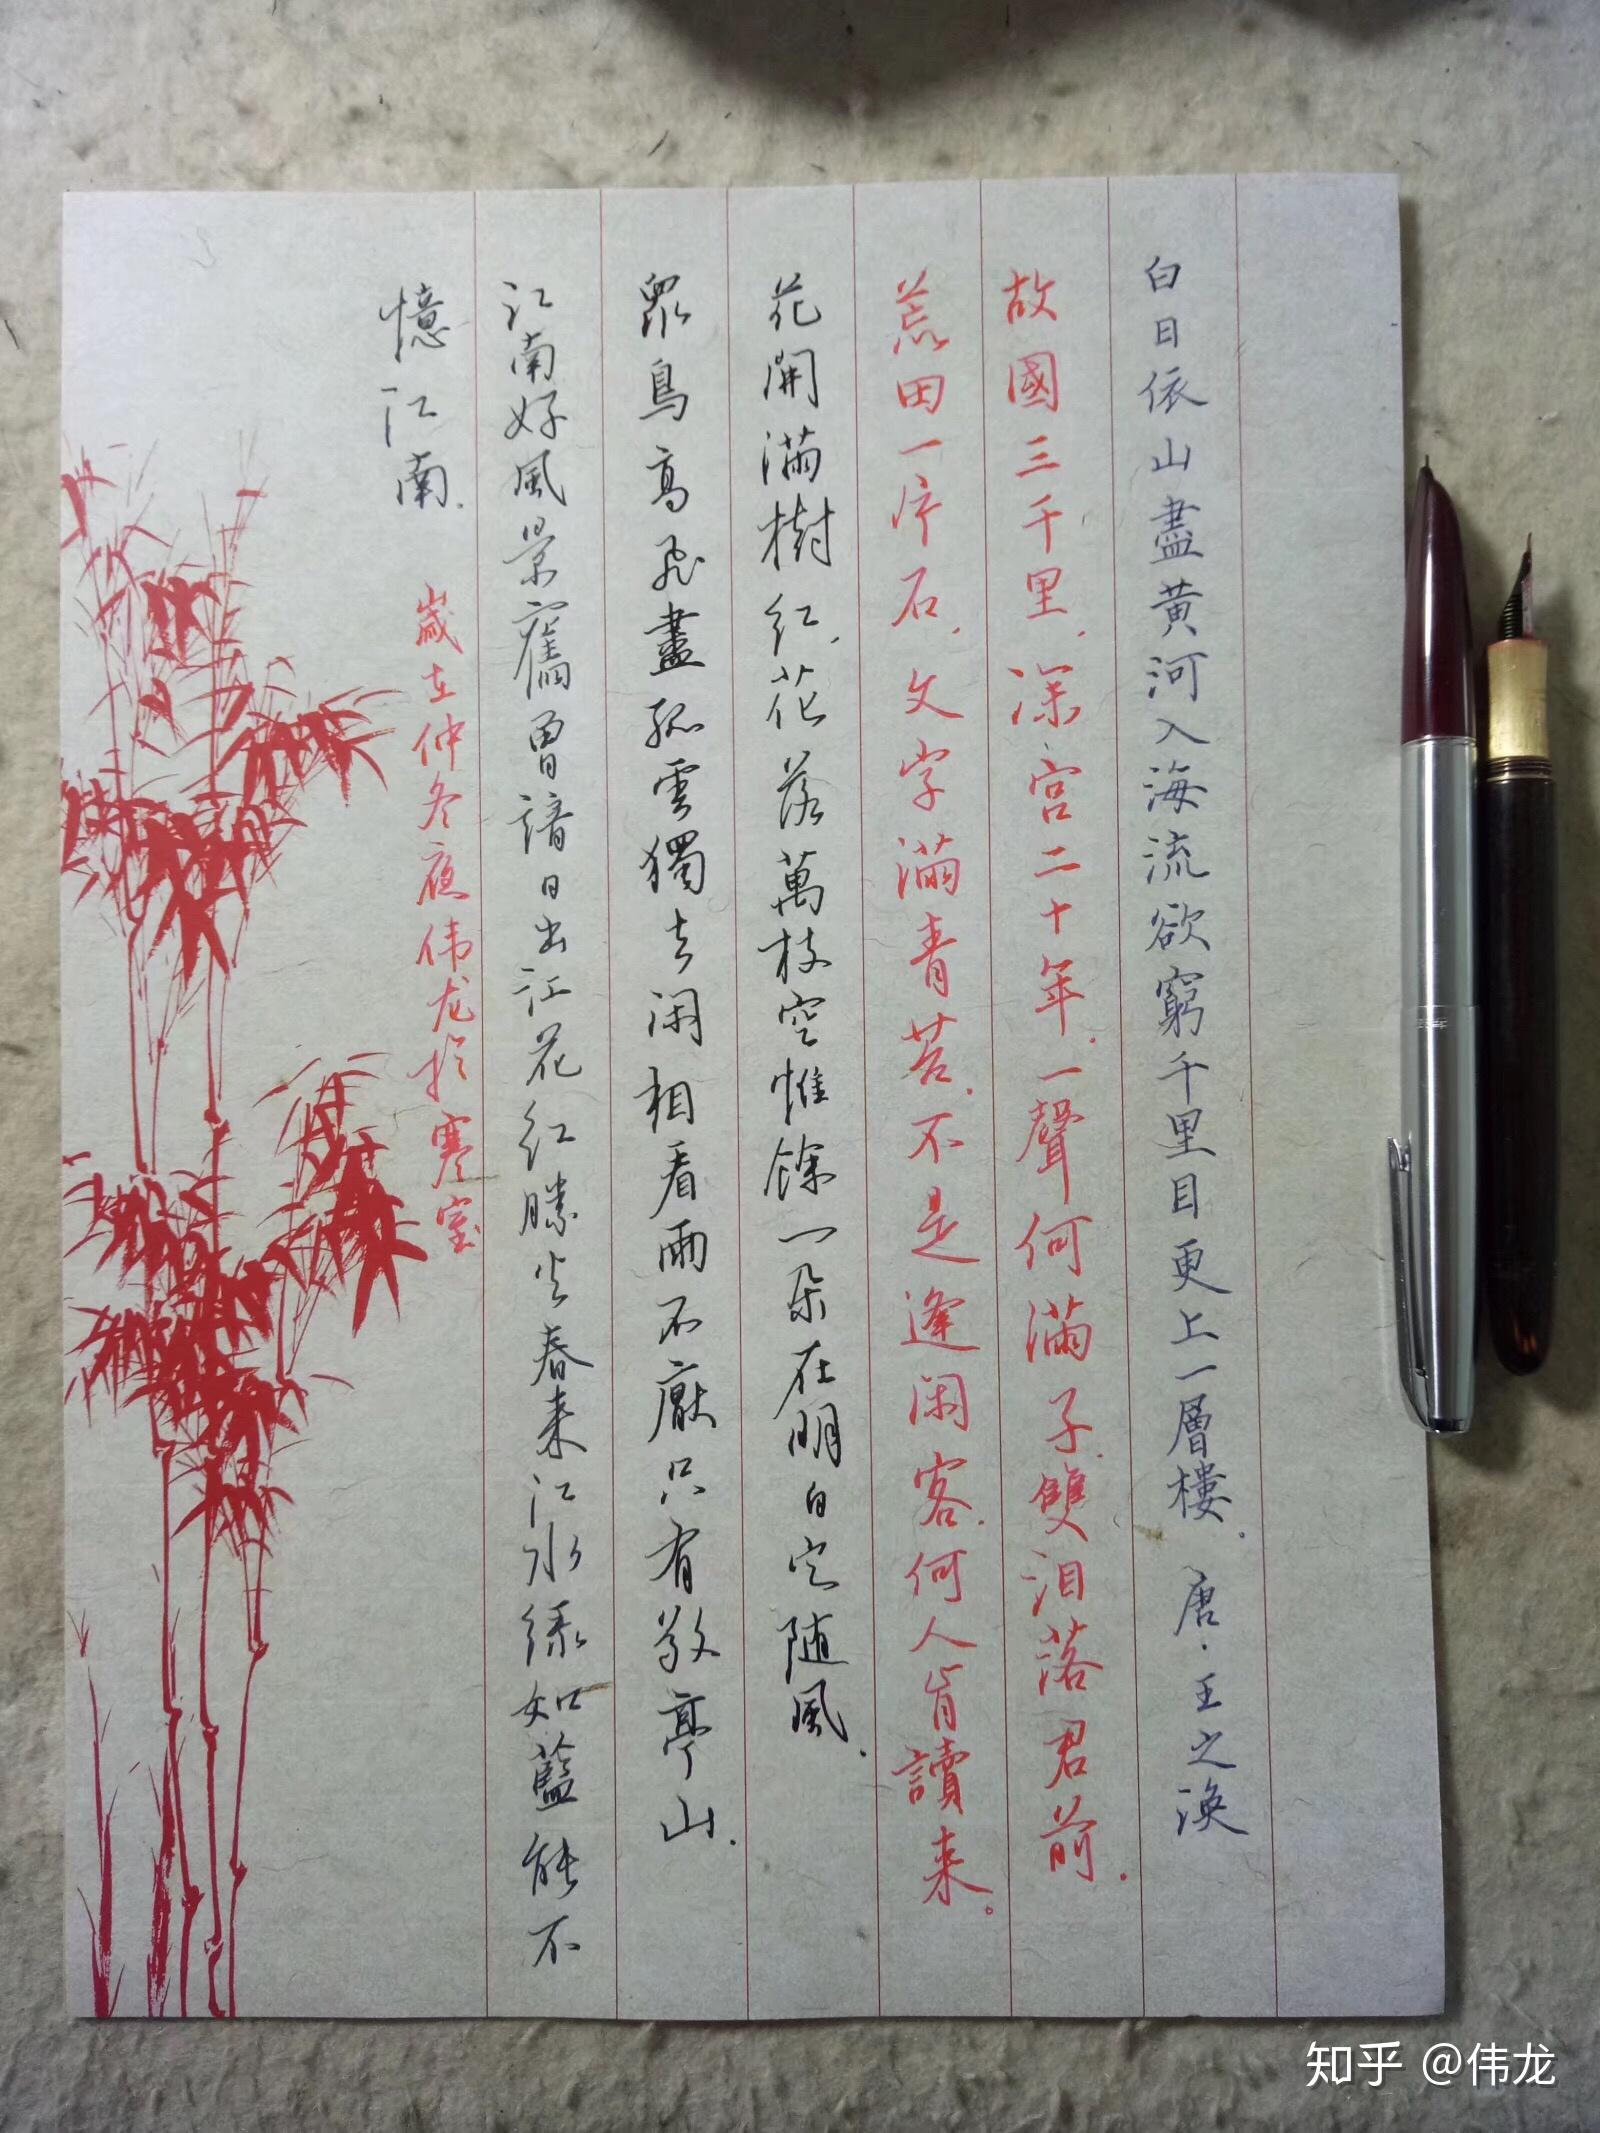 白日依山盡黃河入海流欲窮千里目更上一層樓.唐·王之渙
故國三千里.深宮二十年.一聲何滿子.雙泪落君前.
荒田一片石.文字滿青苔.不是逢闲客.何人肯讀来。
花開滿樹红.花落萬枝空惟餘一朵在明日定随風.
眾鳥高飛盡孤雲獨去闲相看兩不厭只有敬亭山.
江南好風景舊曾諳日出江花红勝火春来江水绿如藍能不
憶江南.
歲在仲冬應伟龙於寒室
知乎 @伟龙